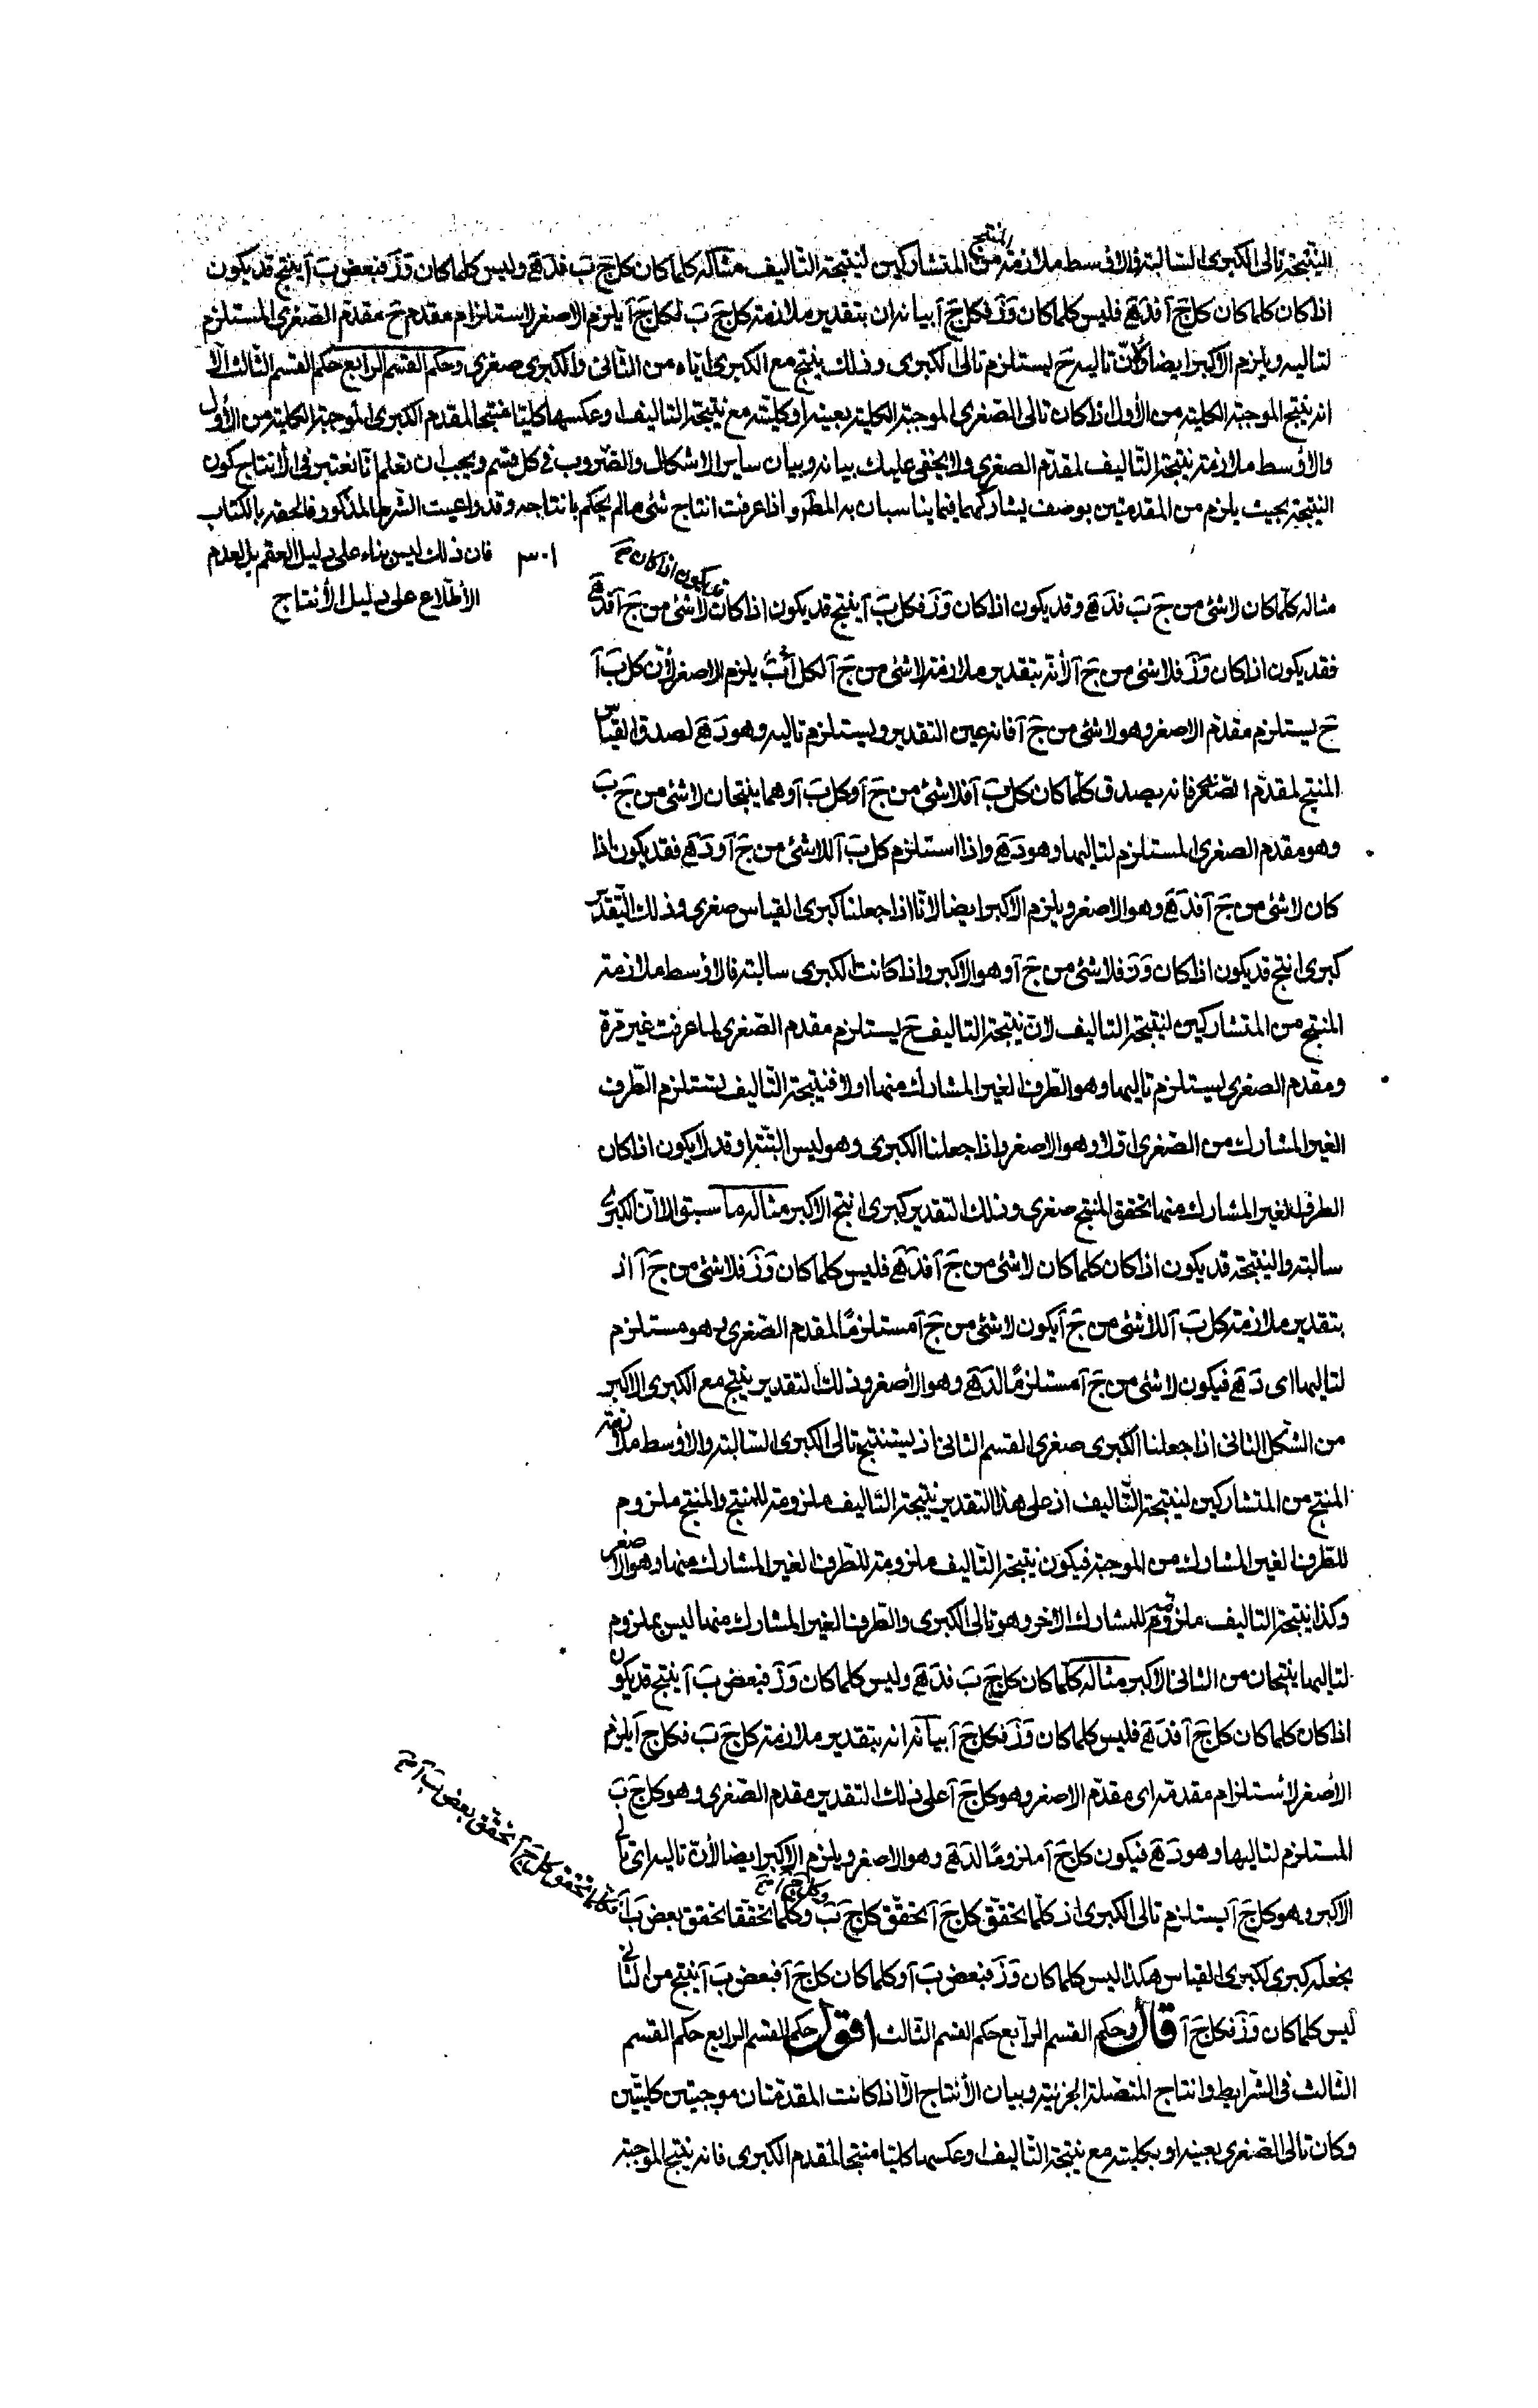 النتيجة تالى الكبرى السالبة والاوسط ملازمة من المنتج المتشاركين لنتيجة التاليف مثاله كلما كان كل ج ب فد ه وليس كلما كان و ز فبعض ب آ ينتج قد يكون
اذا كان كلما كان كل ج آ فد ه فليس كلما كان و ز فكل ج آ بيانه ان بتقدير ملازمة كل ج ب لكل ج آ يلزم الاصغر لاستلزام مقدم ح مقدم الصغرى المستلزم
لتاليه ويلزم الاكبر ايضا ولان تاليه ح ليستلزم تالى الكبرى وذلك ينتج مع الكبرى اياه من الثانى والكبرى صغرى وحكم القسم الرابع حكم القسم الثالث الا
انه ينتج الموجبة الكلية من الأول اذا كان تالى الصغرى الموجبة الكلية بعينه او كليته مع نتيجة التاليف او عكسها كليا منتجا لمقدم الكبرى الموجبة الكلية من الأول
والاوسط ملازمة نتيجة التاليف لمقدم الصغرى ولا يخفى عليك بيانه وبيان ساير الاشكال والضروب فى كل قسم ويجب ان تعلم انا نعتبر فى الانتاج كون
النتيجة بحيث يلزم من المقدمتين بوصف يشاركهما فيما يناسبان به المط و اذا عرفت انتاج شئ مالم يحكم بانتاجه وقد راعيت الشرط المذكور فالحقه بالكتاب
فان ذلك ليس بناء على دليل العقم بل لعدم
الأطلاع على دليل الأنتاج
٣٠١
قد يكون اذا كان صح
مثاله كلما كان لا شئ من ج ب فد ه وقد يكون اذا كان و ز فكل ب آ ينتج قد يكون اذا كان لا شئ من ج آ فد ه
فقد يكون اذا كان و ز فلا شئ من ج آ لأنه بتقدير ملازمة لا شئ من ج آ لكل ب آ يلزم الاصغر لأن كل ب آ
ح ليستلزم مقدم الاصغر وهو لا شئ من ج آ فانه عين التقدير وليستلزم تاليه وهو د ه لصدق القياس
المنتج لمقدم الصغرى فانه يصدق كلما كان كل ب آ فلا شئ من ج آ وكل ب آ وهما ينتجان لا شئ من ج ب
وهو مقدم الصغرى المستلزم لتاليها وهو د ه واذا استلزم كل ب آ للاشئ من ج آ و د ه فقد يكون اذا
كان لا شئ من ج آ فد ه وهو الاصغر ويلزم الاكبر ايضا لانا اذا جعلنا كبرى القياس صغرى وذلك التقدير
كبرى انتج قد يكون اذا كان و ز فلا شئ من ج آ وهو الاكبر واذا كانت الكبرى سالبة فالاوسط ملازمة
المنتج من المتشاركين لنتيجة التاليف لان نتيجة التاليف ح يستلزم مقدم الصغرى لما عرفت غير مرة
ومقدم الصغرى ليستلزم تاليها وهو الطرف الغير المشارك منها اولا فنتيجة التاليف تستلزم الطرف
الغير المشارك من الصغرى اولا وهو الاصغر واذا جعلنا الكبرى وهو ليس البتة او قد لا يكون اذا كان
الطرف الغير المشارك منها تحقق المنتج صغرى وذلك التقدير كبرى انتج الاكبر مثاله ما سبق الا ان الكبرى
سالبة والنتيجة قد يكون اذا كان كلما كان لا شئ من ج آ فد ه فليس كلما كان و ز فلا شئ من ج آ اذ
بتقدير ملازمة كل ب آ للاشئ من ج آ يكون لا شئ من ج آ مستلزمًا لمقدم الصغرى وهو مستلزم
لتاليها اى د ه فيكون لا شئ من ج آ مستلزمًا لد ه وهو الأصغر وذلك التقدير ينتج مع الكبرى الاكبر
من الشكل الثانى اذا جعلنا الكبرى صغرى القسم الثانى ان ليستنتج تالى الكبرى السالبة والاوسط ملازمة
المنتج من المتشاركين لنتيجة التاليف اذ على هذا التقدير نتيجة التاليف ملزومة للمنتج والمنتج ملزوم
للطرف الغير المشارك من الموجبة فيكون نتيجة التاليف ملزومة للطرف الغير المشارك منها وهو الاصغر
وكذا نتيجة التاليف ملزومة للمشارك الآخر وهو تالى الكبرى والطرف الغير المشارك منها ليس بملزوم
لتاليها ينتجان من الثانى الاكبر مثاله كلما كان كل ج ب فد ه وليس كلما كان و ز فبعض ب آ ينتج قد يكون
اذا كان كلما كان كل ج آ فد ه فليس كلما كان و ز فكل ج آ بيانه انه بتقدير ملازمة كل ج ب فكل ج آ يلزم
الأصغر لأستلزام مقدمه اى مقدم الاصغر وهو كل ج آ على ذلك التقدير مقدم الصغرى وهو كل ج ب
المستلزم لتاليها وهو د ه فيكون كل ج آ ملزومًا لد ه وهو الاصغر ويلزم الاكبر ايضا لأن تاليه اى تالى
وكل ج آ صح
الاكبر وهو كل ج آ يستلزم تالى الكبرى اذ كلما تحقق كل ج آ تحقق كل ج ب وكلما تحققا تحقق بعض ب آ
فكلما تحقق كل ج آ تحقق بعض ب آ صح
نجعله كبرى لكبرى القياس هكذا ليس كلما كان و ز فبعض ب آ وكلما كان كل ج آ فبعض ب آ ينتج من الثانى
ليس كلما كان و ز فكل ج آ قال وحكم القسم الرابع حكم القسم الثالث اقول حكم القسم الرابع حكم القسم
الثالث فى الشرايط وانتاج المتصلة الجزئية وبيان الأنتاج الا اذا كانت المقدمتان موجبتين كليتين
وكان تالى الصغرى بعينه او بكليته مع نتيجة التاليف او عكسها كليا منتجا لمقدم الكبرى فانه ينتج الموجبة